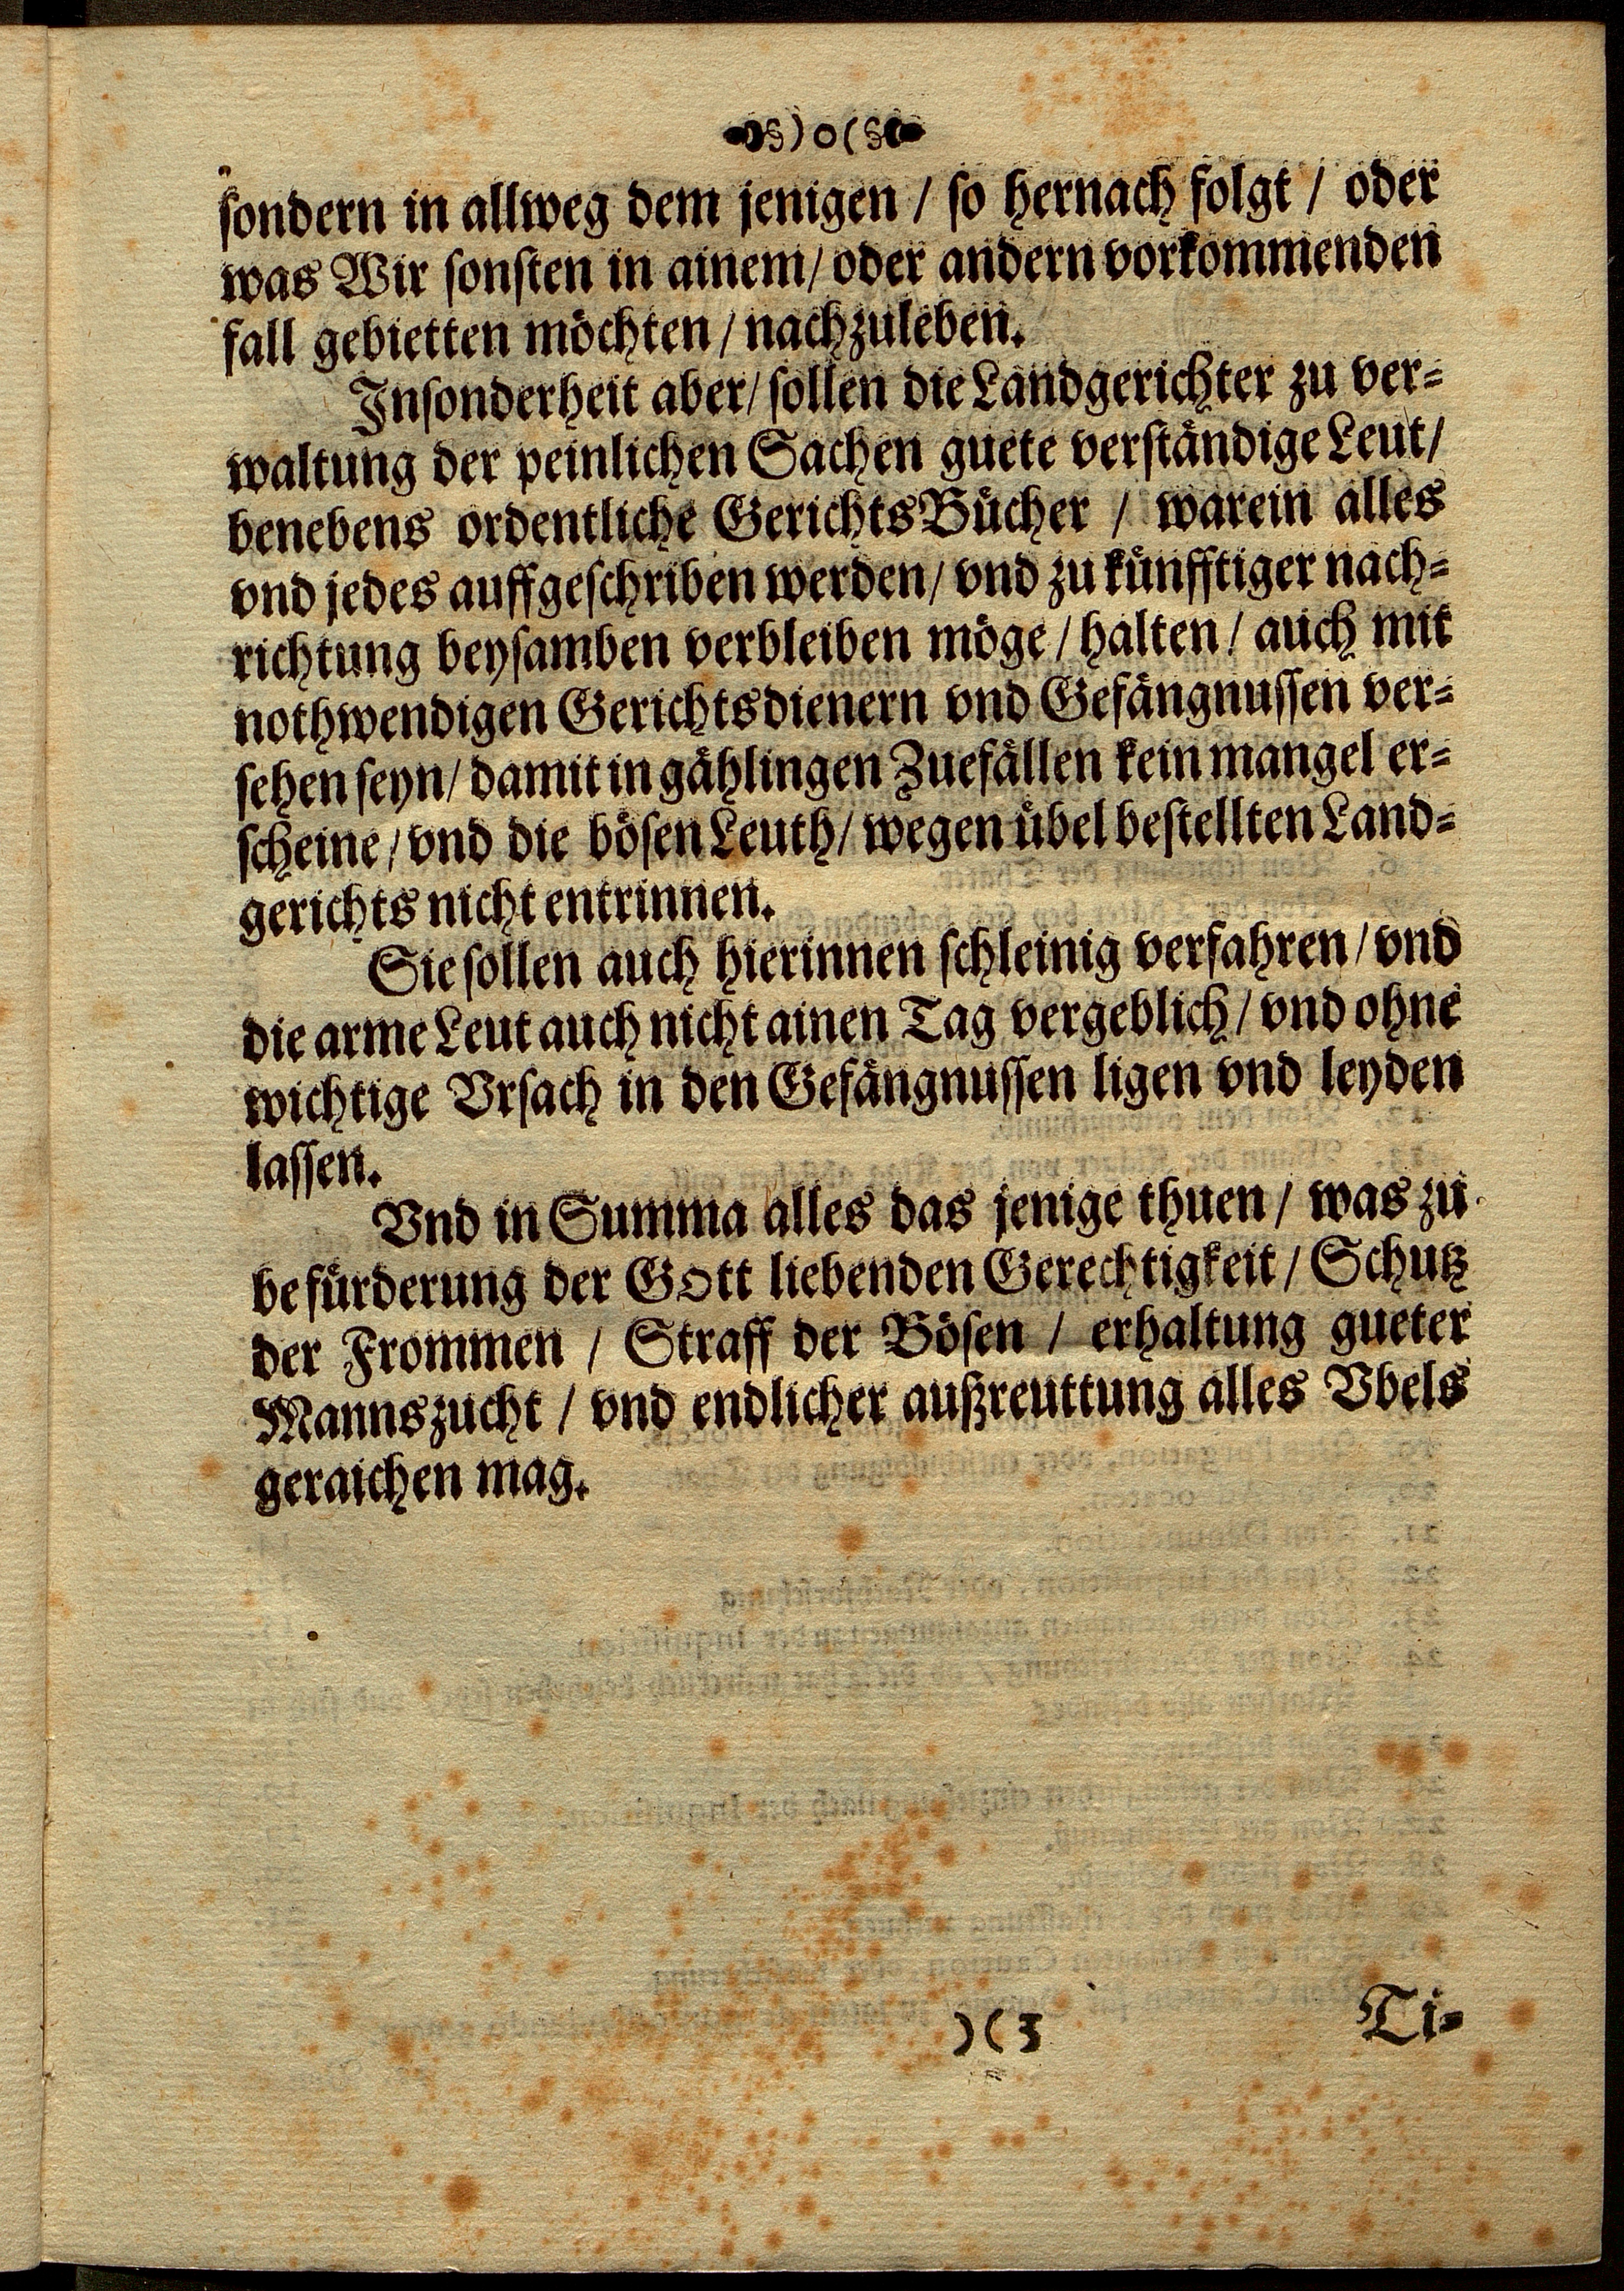 §)o(§
sondern in allweg dem jenigen / so hernach folgt / oder
was Wir sonsten in ainem / oder andern vorkommenden
fall gebietten möchten / nachzuleben.
Insonderheit aber / sollen die Landgerichter zu ver=
waltung der peinlichen Sachen guete verständige Leut /
benebens ordentliche GerichtsBücher / warein alles
vnd jedes auffgeschriben werden / vnd zu künfftiger nach=
richtung beysamben verbleiben möge / halten / auch mit
nothwendigen Gerichtsdienern vnd Gefängnussen ver=
sehen seyn / damit in gählingen Zuefällen kein mangel er=
scheine / vnd die bösen Leuth / wegen übel bestellten Land=
gerichts nicht entrinnen.
Sie sollen auch hierinnen schleinig verfahren / vnd
die arme Leut auch nicht ainen Tag vergeblich / vnd ohne
wichtige Vrsach in den Gefängnussen ligen vnd leyden
lassen.
Vnd in Summa alles das jenige thuen / was zu
befürderung der GOtt liebenden Gerechtigkeit / Schutz
der Frommen / Straff der Bösen / erhaltung gueter
Mannszucht / vnd endlicher außreuttung alles Vbels
geraichen mag.
)(3 Ti=